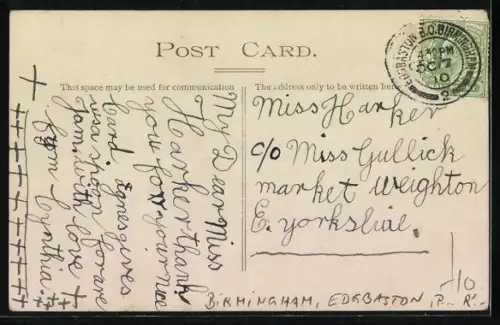 POST CARD.
This space may be used for communication
The address only to be written here
EDGBASTON B.O. BIRMINGHAM
10
2
My Dear Miss
Harker thank
you for your nice
card. Agnes gives
us a spoon for are
Jam with love
from Cynthia.
Miss Harker
c/o Miss Gullick
market Weighton
E. yorkshire.
BIRMINGHAM, EDGBASTON